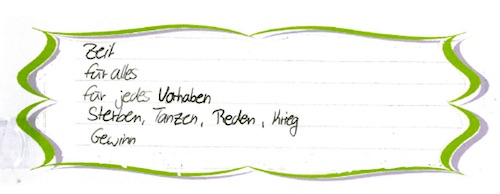 Zeit
für alles
für jedes Vorhaben
Sterben, Tanzen, Reden, Krieg
Gewinn